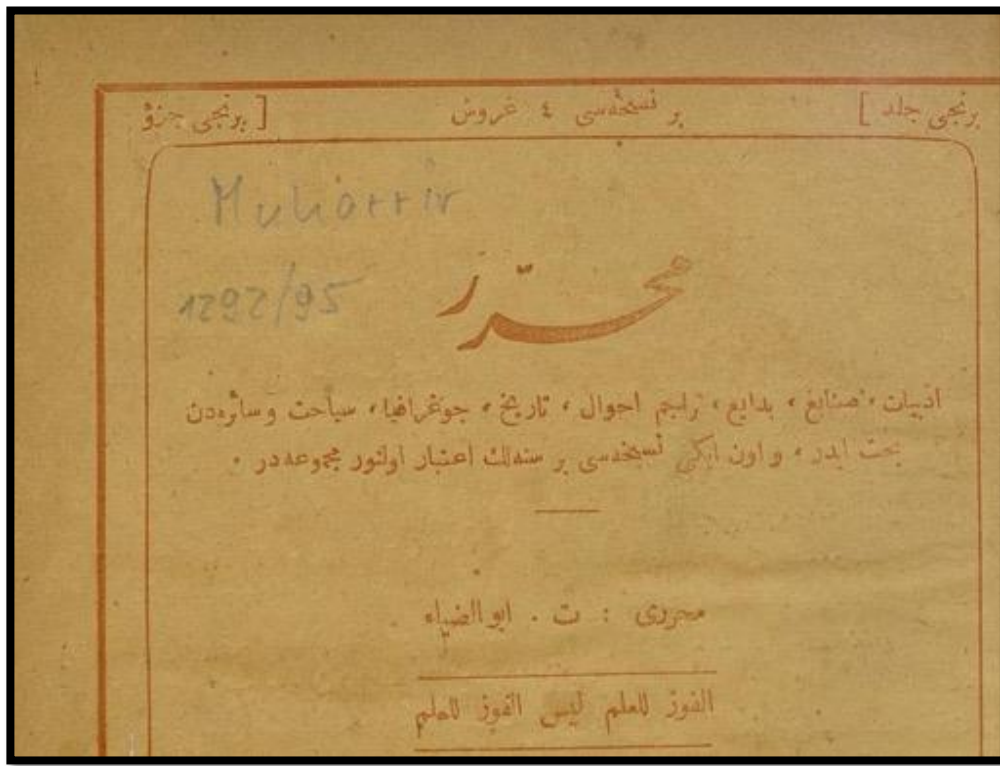 برنجی جلد ] بر نسخه‌سی ٤ غروش [ برنجی جزؤ
Muharrir
1292/95
محرّر
ادبیات، صنایع، بدایع، تراجم احوال، تاریخ، جوغرافیا، سیاحت وسائره‌دن
بحث ایدر، و اون ایکی نسخه‌سی بر سنه‌لك اعتبار اولنور مجموعه‌در.
محرری : ت . ابوالضیاء
الفوز للعلم لیس الفوز للعلم